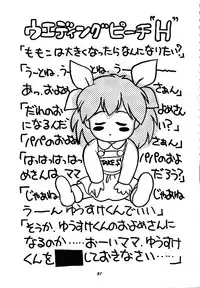 ウエディングピーチ"H"
「ももこは大きくなったらなんになりたい？」
「うーとね、うーとね、うー
あっ、およめさぁん」
「だれのおよめさん
になるんだ？」
「パパのおよめさぁん」
「はっはっはっ、パパのお
よめさんは、ママだろう？」
「じゃあねぇ
うーーん ゆうすけくんでいい」
「そうか、ゆうすけくんのおよめさんに
なるのか……おーいママ、ゆうすけ
くんを しておきなさい…‥」
TAKE S
31